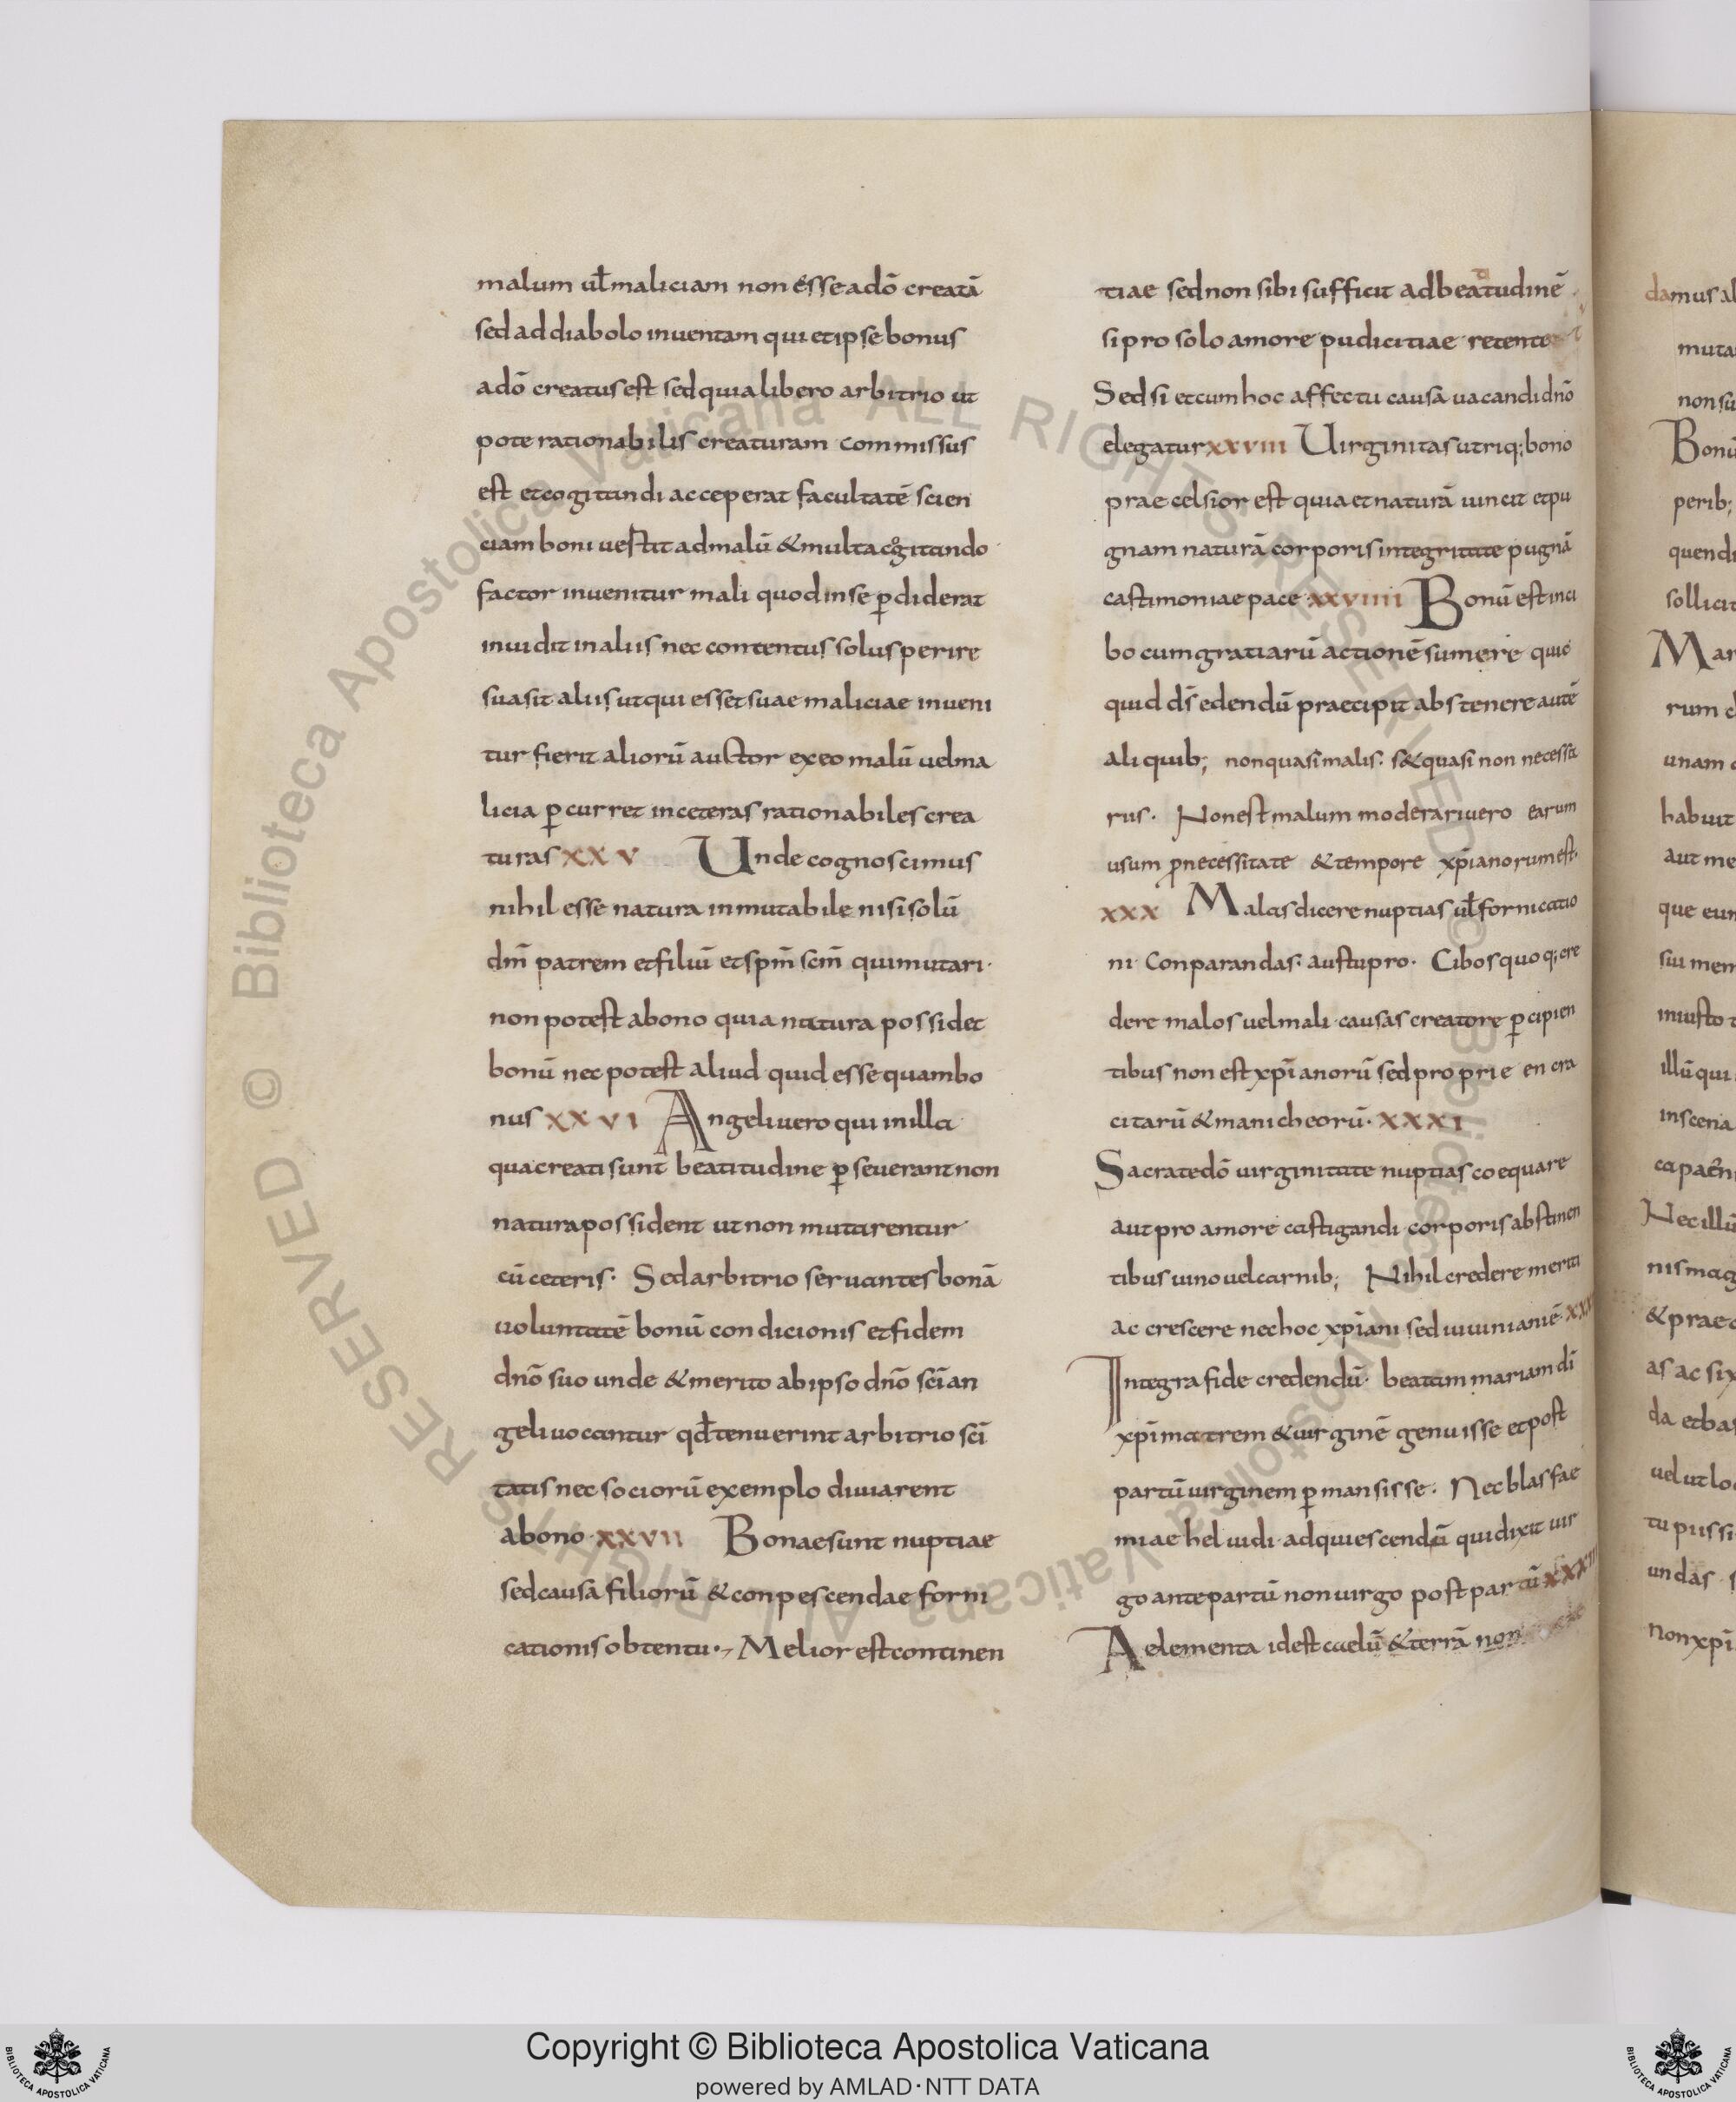 malum ul̄ maliciam non esse a dō creatā
sed a diabolo inuentam qui et ipse bonus
a dō creatus est sed quia libero arbitrio ut
pote rationabilis creaturam commissus
est et cogitandi acceperat facultatē scien
ciam boni uestit ad malū & multa cogitando
factor inuenitur mali quod in se ꝑdiderat
inuidit in aliis nec contentus solus perire
suasit aliis ut qui esset suae maliciae inueni
tur fierit aliorū auctor ex eo malū uel ma
licia ꝑcurret in ceteras rationabiles crea
turas XXV Unde cognoscimus
nihil esse natura inmutabile nisi solū
dm̄ patrem et filiū et spm̄ scm̄ qui mutari
non potest a bono quia natura possidet
bonū nec potest aliud quid esse quam bo
nus XXVI Angeli uero qui in illa
qua creati sunt beatitudine ꝑseuerant non
natura possident ut non mutarentur
cū ceteris. Sed arbitrio seruantes bonā
uoluntatē bonū condicionis et fidem
dn̄o suo unde & merito ab ipso dn̄o sc̄i an
geli uocantur qd̄ tenuerint arbitrio sc̄i
tatis nec sociorū exemplo diuiarent
a bono XXVII Bonae sunt nuptiae
sed causa filiorū & conpescendae forni
cationis obtentu. Melior est continen
tiae sed non sibi sufficit ad beatudinē
si pro solo amore pudicitiae
Sed si et cum hoc affectu causā uacandi dn̄o
elegatur XXVIII Uirginitas utriq; bono
praecelsior est quia et naturā uincit et pu
gnam naturā corporis integritate pugnā
castimoniae pace XXVIIII Bonū est in ci
bo cum gratiarū actionē sumere quic
quid ds̄ edendū praecipit abstenere autē
aliquib; non quasi malis. s& quasi non necessa
rus. Non est malum moderari uero earum
usum ꝓ necessitate & tempore xp̄ianorum est.
XXX Malas dicere nuptias ul̄ fornicatio
ni conparandas. au stupro. Cibos quoq; cre
dere malos uel mali causas creatore ꝑcipien
tibus non est xp̄ianorū sed proprie encra
citarū & manicheorū. XXXI
Sacrate dō uirginitate nuptias coequare
aut pro amore castigandi corporis abstinen
tibus uino uel carnib; Nihil credere meriti
ac crescere nec hoc xp̄iani sed iuuinianiē
Integra fide credendū. beatam mariam dī
xp̄i matrem & uirginē genuisse et post
partū uirginem ꝑmansisse. Nec blasfae
miae heluidi adquiescendū qui dixit uir
go ante partū non uirgo post partū
A elementa id est caelū & terrā non
damus al
muta
non su
Bonū
perib;
quendi
sollicit
Mar
rum
unam
habuit
aut me
que eum
sui mem
iniusto
illū qui
in scena
Nec illū
nis mag
& praec
as ac six
da et bas
uel ut lo
tu piissi
undas
non xp̄i
Copyright © Biblioteca Apostolica Vaticana
powered by AMLAD·NTT DATA
BIBLIOTECA APOSTOLICA VATICANA
BIBLIOTECA APOSTOLICA VATICANA
© Biblioteca Apostolica Vaticana ALL RIGHTS RESERVED © Biblioteca Apostolica Vaticana ALL RIGHTS RESERVED